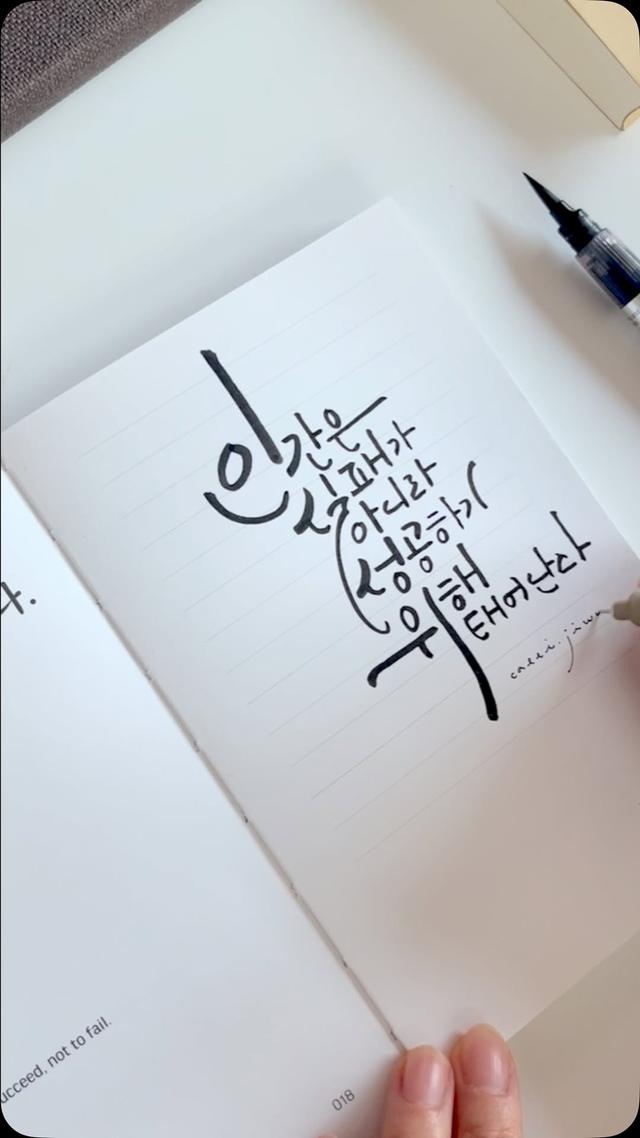 인간은
실패가
아니라
성공하기
위해
태어난다
다.
ucceed, not to fail.
018